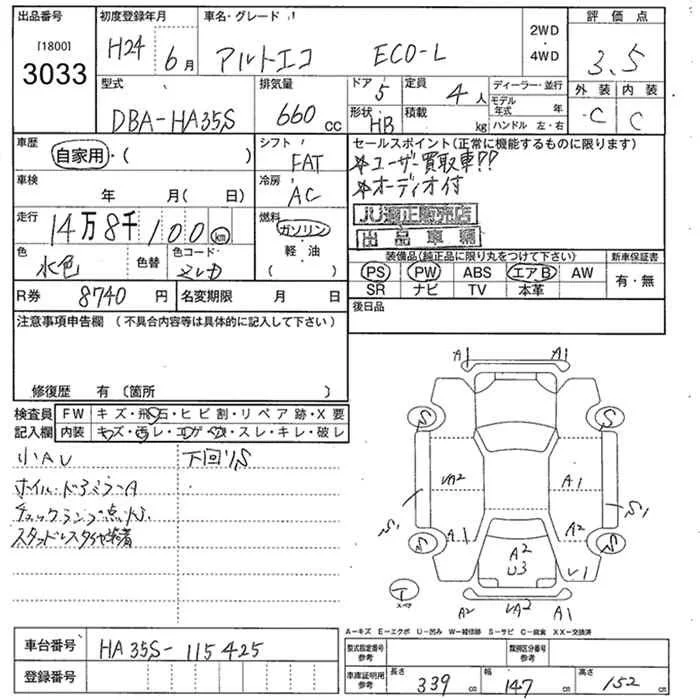 出品番号 初度登録年月 車名・グレード 2WD・4WD 評価点
[1800]
3033 H24 6月 アルトエコ ECO-L 3.5
型式 排気量 ドア 5 定員 4人 ディーラー・並行 外装 内装
DBA-HA35S 660cc 形状 HB 積載 kg モデル年式 年 ハンドル 左・右 C C
車歴 自家用・( ) シフト FAT セールスポイント(正常に機能するものに限ります)
*ユーザー買取車!!
車検 年 月( 日) 冷房 AC *オーディオ付
走行 14万8千100km 燃料 ガソリン JU適正販売店
軽・油 ( ) 出品車輌
色 水色 色替 色コード
装備品(純正品に限り丸をつけて下さい) 新車保証書
PS PW ABS エアB AW 有・無
SR ナビ TV 本革
R券 8740円 名変期限 月 日 後日品
注意事項申告欄(不具合内容等は具体的に記入して下さい)
修復歴 有(箇所 )
検査員 FW キズ・飛石・ヒビ割・リペア跡・X要
記入欄 内装 キズ・汚レ・コゲ・穴・スレ・キレ・破レ
小AU 下回りS
ホイル・ドアミラーA
チェックランプ点灯
スタッドレスタイヤ装着
A1 A1
S S
UA2 A1
S1 S1
A1 A2
S S
A2
U3 U1
T
スペア
A2 UA2 A1
A-キズ E-エクボ U-凹み W-補修跡 S-サビ C-腐食 XX-交換済
車台番号 HA35S-115425
型式指定番号 参考 類別区分番号 参考
登録番号
車庫証明用 参考 長さ 339cm 幅 147cm 高さ 152cm